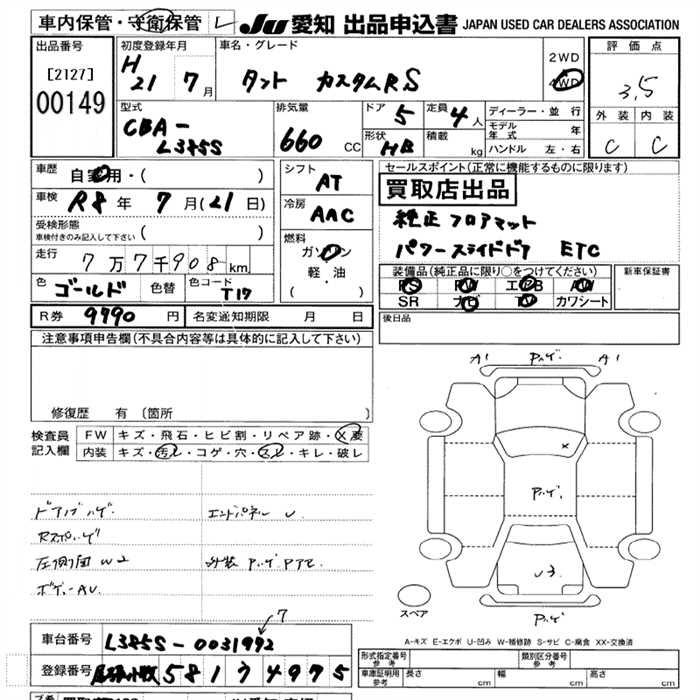 車内保管・守衛保管 レ JU 愛知 出品申込書 JAPAN USED CAR DEALERS ASSOCIATION
出品番号
[2127]
00149
初度登録年月
H 21 7月
車名・グレード
タント カスタムRS
2WD
4WD
評価点
3,5
外装 内装
C C
型式
CBA-
L385S
排気量
660 CC
ドア 5
定員 4人
形状 HB
積載 kg
ディーラー・並行
モデル年式 年
ハンドル 左・右
車歴
自家用・( )
車検
R8年 7月(21日)
受検形態
車検付きのみ記入して下さい ( )
走行
7万7千908km
色 ゴールド 色替 色コード T17
シフト
AT
冷房
AAC
燃料
ガソリン
軽・油
( )
セールスポイント(正常に機能するものに限ります)
買取店出品
純正フロアマット
パワースライドドア ETC
装備品(純正品に限り○をつけてください)
PS PW エアB AW
SR ナビ TV カワシート
新車保証書
R券 9790円 名変通知期限 月 日
後日品
注意事項申告欄(不具合内容等は具体的に記入して下さい)
修復歴 有 (箇所 )
検査員記入欄
FW キズ・飛石・ヒビ割・リペア跡・X要
内装 キズ・汚レ・コゲ・穴・スレ・キレ・破レ
ドアバハゲ エンドパネル U
Rスポハゲ
左側面W2 外装
ボデーAU
A1 A1
x
U3
スペア
A-キズ E-エクボ U-凹み W-補修跡 S-サビ C-腐食 XX-交換済
車台番号 L385S-0031992
7
登録番号 581 74975
形式指定番号 参考
類別区分番号 参考
車庫証明用 参考 長さ cm 幅 cm 高さ cm